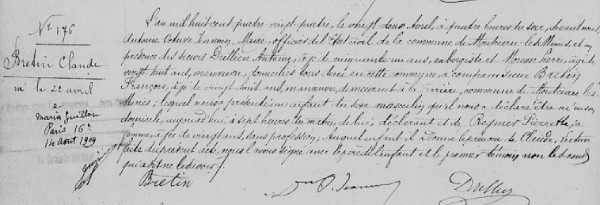 N° 176
Bretin Claude
né le 22 avril
Maria Guillon
Paris 16e
14 Août 1909
L'an mil huit cent quatre vingt quatre, le vingt deux Avril, à quatre heures du soir, devant nous
Antoine Octave Jeannin, Maire, officier de l'Etat civil de la commune de Montceau-les-Mines, et en
présence des sieurs Antoine, âgé de cinquante un ans, aubergiste et Pierre, âgé de
vingt huit ans, manœuvre, domiciliés tous deux en cette commune, a comparu sieur Bretin
François, âgé de vingt huit ans, manœuvre, demeurant à la commune de Montceau les
Mines; lequel nous présente un enfant du sexe masculin qu'il nous a déclaré être né en son
domicile, aujourd'hui à sept heures du matin, de lui, déclarant et de Pierrette, sa
femme, âgée de vingt ans, sans profession, auquel enfant il donne le prénom de Claude. Lecture
faite du présent acte, nous l'avons signé avec le père de l'enfant et le premier témoin, non le second
qui a dit ne le savoir.
Bretin
O. Jeannin